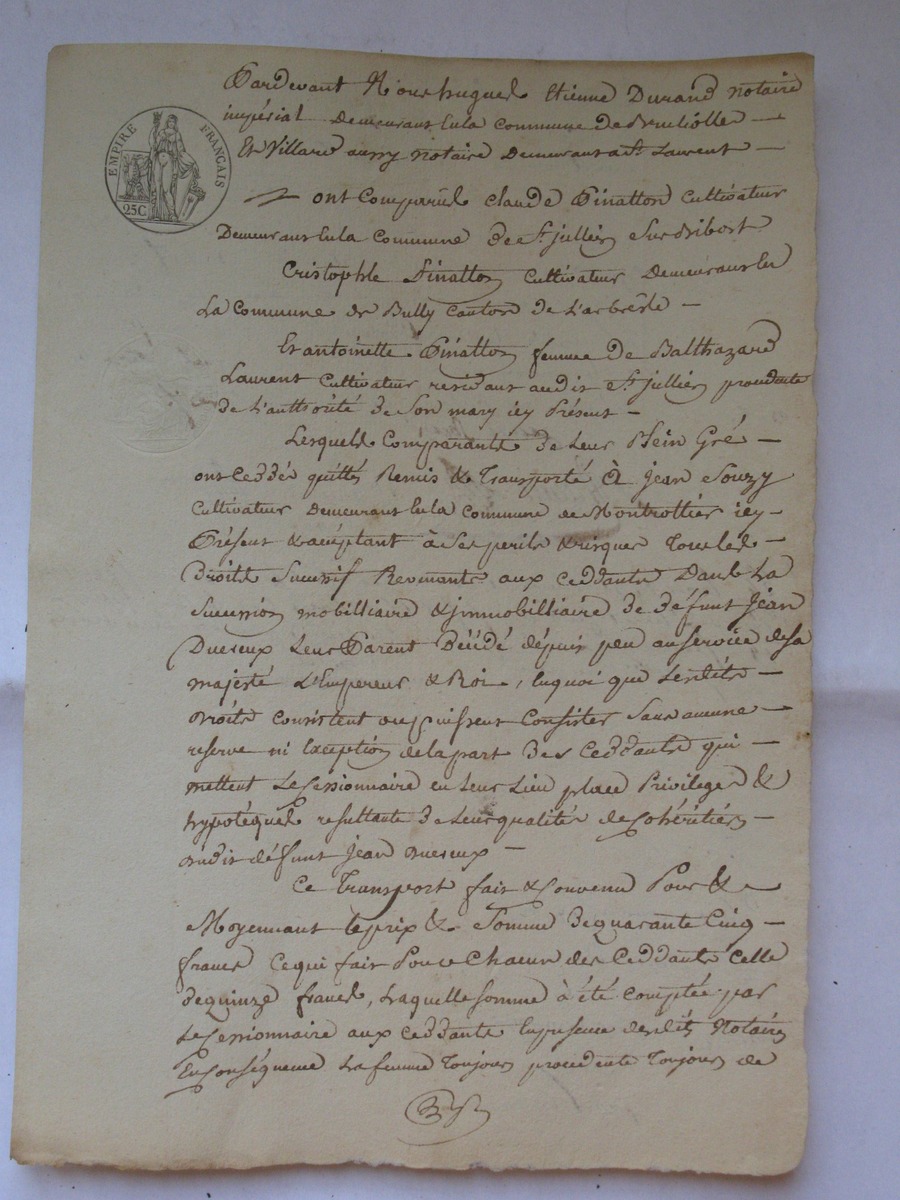 EMPIRE FRANÇAIS
25C
Pardevant Nous hugues Etienne Durand Notaire
impérial Demeurant en la Commune de Brulliolles
Et Villard aussy Notaire Demeurant a St. Laurent
ont Comparus Claude Pinatton Cultivateur
Demeurant en la Commune de St. jullien Sur Bibost
Cristophle Pinatton Cultivateur Demeurant en
La Commune de Bully Canton de L'arbresle
Et antoinette Pinatton femme de Balthazard
Laurent Cultivateur residant audit St. jullien procedente
de L'authorité de Son mary icy Présent
Lesquels Comparants de Leur Plein Gré
ont Ceddés quittés Remis & Transporté à Jean Souzy
Cultivateur Demeurant en la Commune de Montrottier icy
Présent & aceptant à Ses perils & risques Tous les
Droits Sucessif Revenants aux Ceddants Dans La
Sucession mobilliaire & jmmobilliaire de défunt Jean
Ducreux Leur Parent Décédé depuis peu au Service de Sa
majesté L'Empereur & Roi, En quoi que Lesdits
Droits Consistent ou puissent Consister Sans aucune
reserve ni Exception de la part des Ceddants qui
mettent Le Cessionnaire en Leur Lieu place Privileges &
hypotéques resultants de Leur qualités de Cohéritiers
dudit défunt Jean ducreux
Ce Transport fait & Convenu Pour &
Moyennant le prix & Somme de quarante Cinq
francs Ce qui fait Pour Chacun des Ceddants Celle
de quinze francs, Laquelle Somme à été Comptée par
Le Cessionnaire aux Ceddants En presence desdits Notaires
En Conséquence La femme Toujours procedente Toujours de